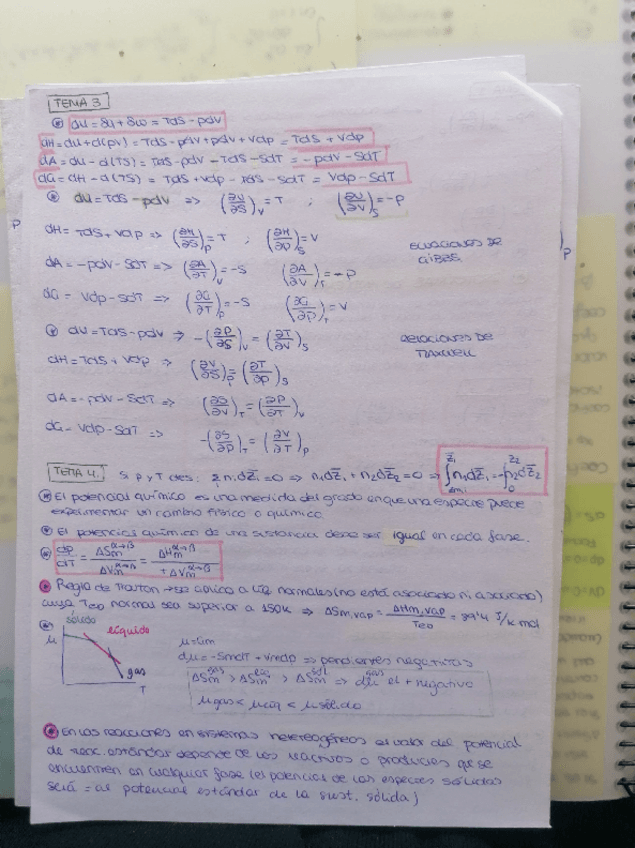 TEMA 3
dU = δq + δω = TdS - pdV
dH = dU + d(pV) = TdS - pdV + pdV + Vdp = TdS + Vdp
dA = dU - d(TS) = TdS - pdV - TdS - SdT = -pdV - SdT
dG = dH - d(TS) = TdS + Vdp - TdS - SdT = Vdp - SdT
dU = TdS - pdV => (∂U/∂S)V = T ; (∂U/∂V)S = -P
dH = TdS + Vdp => (∂H/∂S)P = T ; (∂H/∂P)S = V
ECUACIONES DE
GIBBS
dA = -pdV - SdT => (∂A/∂T)V = -S (∂A/∂V)T = -P
dG = Vdp - SdT => (∂G/∂T)P = -S (∂G/∂P)T = V
dU = TdS - pdV => -(∂P/∂S)V = (∂T/∂V)S
RELACIONES DE
MAXWELL
dH = TdS + Vdp => (∂V/∂S)P = (∂T/∂P)S
dA = -pdV - SdT => (∂S/∂V)T = (∂P/∂T)V
dG = Vdp - SdT => -(∂S/∂P)T = (∂V/∂T)P
TEMA 4. Si p y T ctes:
El potencial químico es una medida del grado en que una especie puede
experimentar un cambio físico o químico
El potencial químico de una sustancia debe ser igual en cada fase.
dp/dT = ΔSm α→β / ΔVm α→β = ΔHm α→β / T ΔVm α→β
Regla de Trouton → se aplica a líq normales (no está asociado ni
cuya Teb normal sea superior a 150K => ΔSm,vap = ΔHm,vap / Teb =
sólido
líquido
μ
gas
T
μ = Gm
dμ = -SmdT + Vmdp => pendientes negativas
ΔSm gas > ΔSm líq > ΔSm sól => dμ gas el + negativo
μgas < μlíq < μsólido
En las reacciones en sistemas heterogéneos el valor del potencial
de reac. estándar depende de los reactivos o productos que se
encuentren en cualquier fase (el potencial de las especies sólidas
será = al potencial estándar de la sust. sólida)